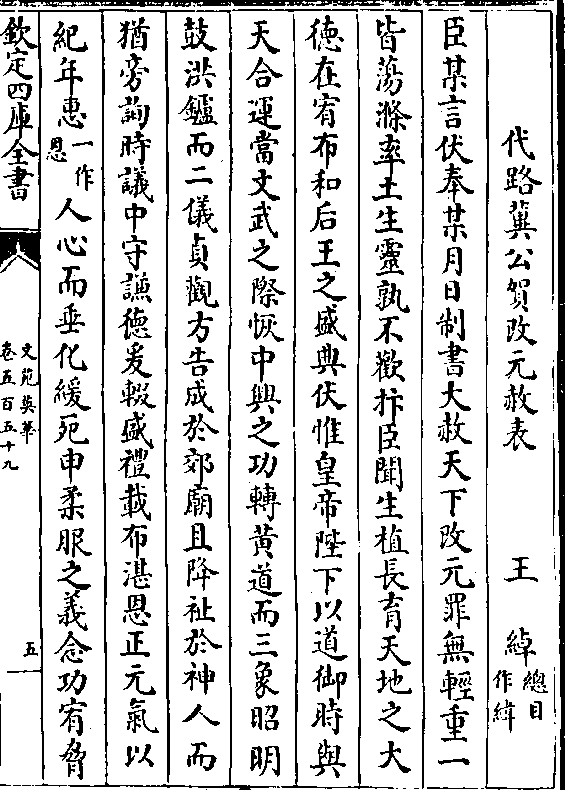 代路冀公賀改元赦表　　王　緯總目作緯
臣某言伏奉某月日制書大赦天下改元罪無輕重一
皆蕩滌率土生靈孰不歡抃臣聞生植長育天地之大
徳在宥布和后王之盛典伏惟皇帝陛下以道御時與
天合運當文武之際恢中興之功轉黄道而三象昭明
鼓洪鑪而二儀貞觀方告成於郊廟且降祉於神人而
猶旁詢時議中守謙徳爰輟盛禮載布湛恩正元氣以
紀年惠一作恩人心而垂化緩死申柔服之義念功宥脅
欽定四庫全書
文苑英華
卷五百五十九
五